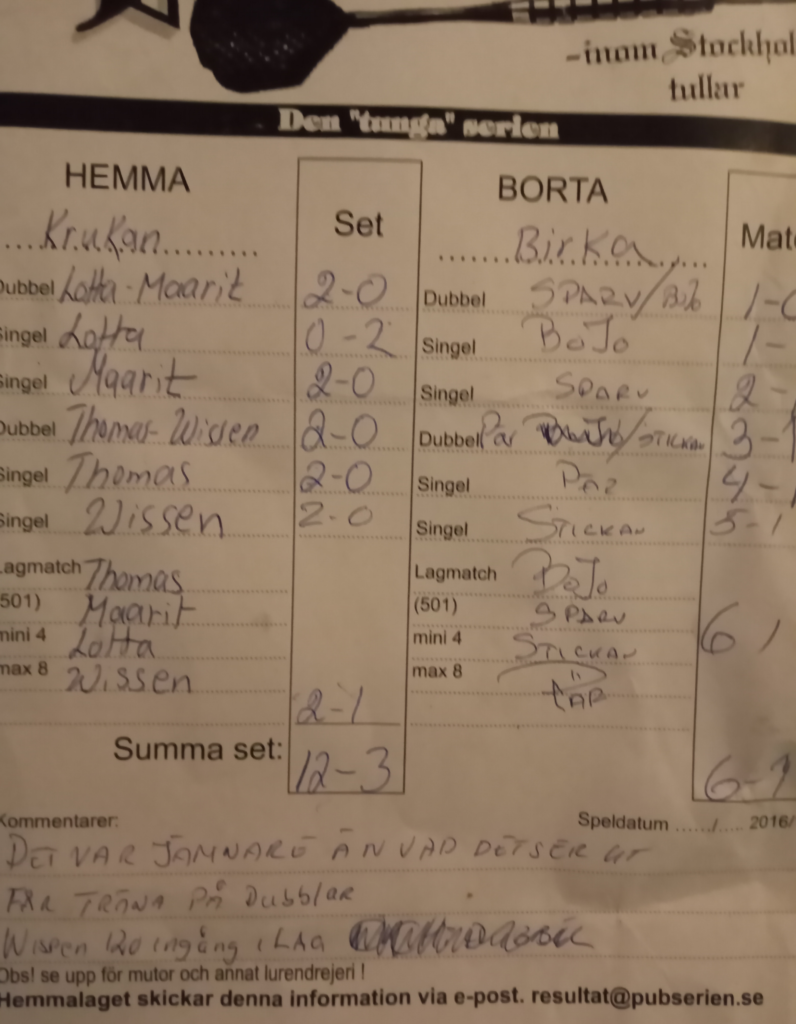 -inom Stockhol
tullar
Den "tunga" serien
HEMMA Set BORTA Mat
Krukan Birka
Dubbel Lotta-Maarit 2-0 Dubbel SPARV/ 1-0
Singel Lotta 0-2 Singel BoJo 1-
Singel Maarit 2-0 Singel SPARV 2-
Dubbel Thomas-Wissen 2-0 Dubbel Pär /STICKAN 3-1
Singel Thomas 2-0 Singel PÄR 4-1
Singel Wissen 2-0 Singel STICKAN 5-1
Lagmatch Thomas Lagmatch BoJo
(501) Maarit (501) SPARV
mini 4 Lotta mini 4 STICKAN 6 1
max 8 Wissen max 8 PÄR
2-1
Summa set: 12-3 6-1
Kommentarer: Speldatum ....../..... 2016/
DET VAR JÄMNARE ÄN VAD DET SER UT
FÅR TRÄNA PÅ Dubblar
Wissen 120 ingång i LAG
Obs! se upp för mutor och annat lurendrejeri !
Hemmalaget skickar denna information via e-post. resultat@pubserien.se